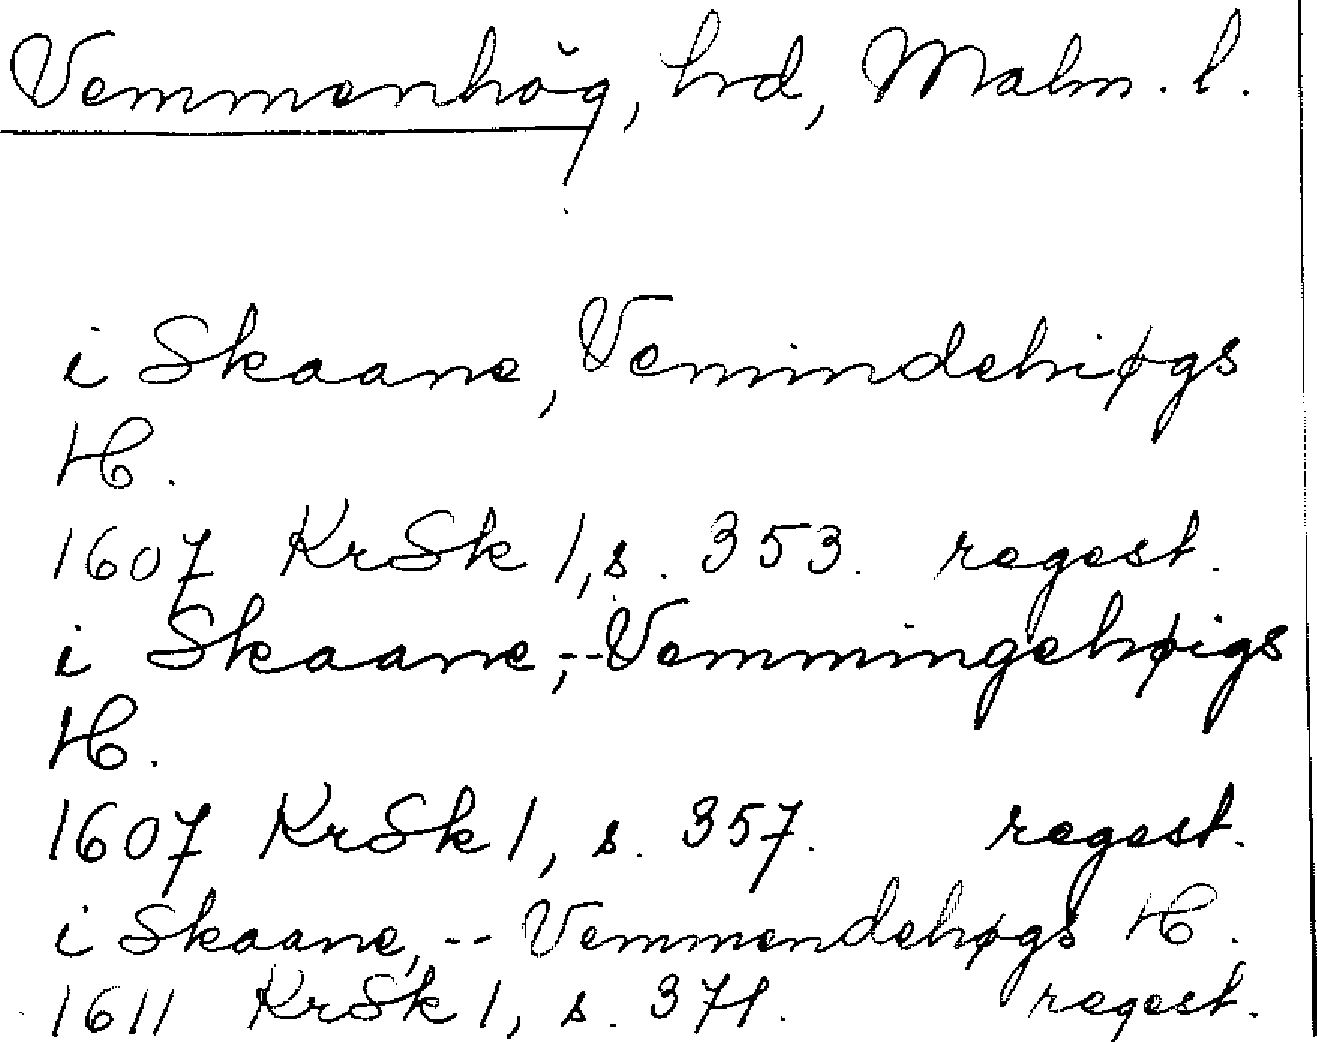 Vemmenhög, hrd, Malm. l.
i Skaane, Vemindehiøgs
H.
1607 KrSk 1, s. 353. regest.
i Skaane, -- Vemmingehøigs
H.
1607 KrSk 1, s. 357. regest.
i Skaane, -- Vemmendehøgs H.
1611 KrSk 1, s. 371. regest.